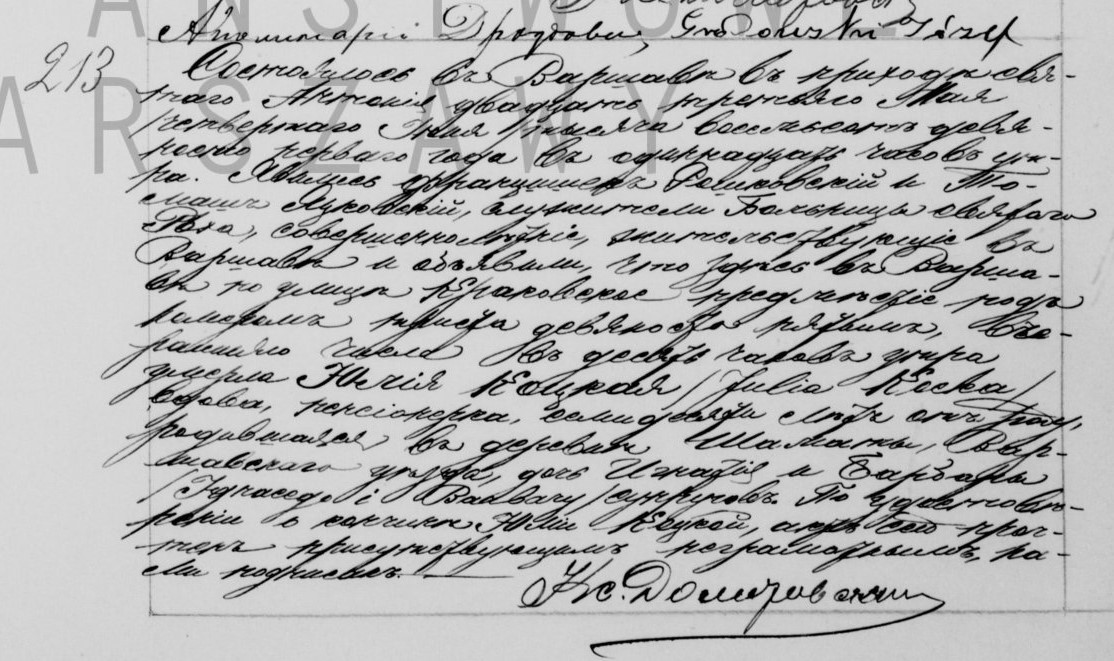 Аполинарiй Дроздович, Grodowski Józef
213
Состоялось въ Варшавѣ въ приходѣ свя-
таго Антонiя двадцать третьяго Мая
/четвертаго Iюня/ тысяча восемьсотъ девя-
носто перваго года въ одиннадцать часовъ ут-
ра. Явились Францишекъ Рашковскiй и То-
машъ Жуковскiй, служители Больницы святаго
Роха, совершеннолѣтнiе, жительствующiе въ
Варшавѣ и объявили, что здѣсь въ Варша-
вѣ по улицѣ Краковское предмѣстiе подъ
номеромъ триста девяносто пятымъ, вче-
рашняго числа въ десять часовъ утра
умерла Юлiя Коцкая /Julia Kocka/
вдова, пенсiонерка, семидесяти лѣтъ отъ роду,
родившаяся въ деревнѣ Шаматы, Вар-
шавскаго уѣзда, дочь Игнатiя и Барбары
/Ignacego i Barbary/ супруговъ. По удостовѣ-
ренiи о кончинѣ Юлiи Коцкой, актъ сей проч-
тенъ присутствующимъ неграмотнымъ, на-
ми подписанъ.
Кс. Домагровскiй
ANSTWOW
ARSZAWY